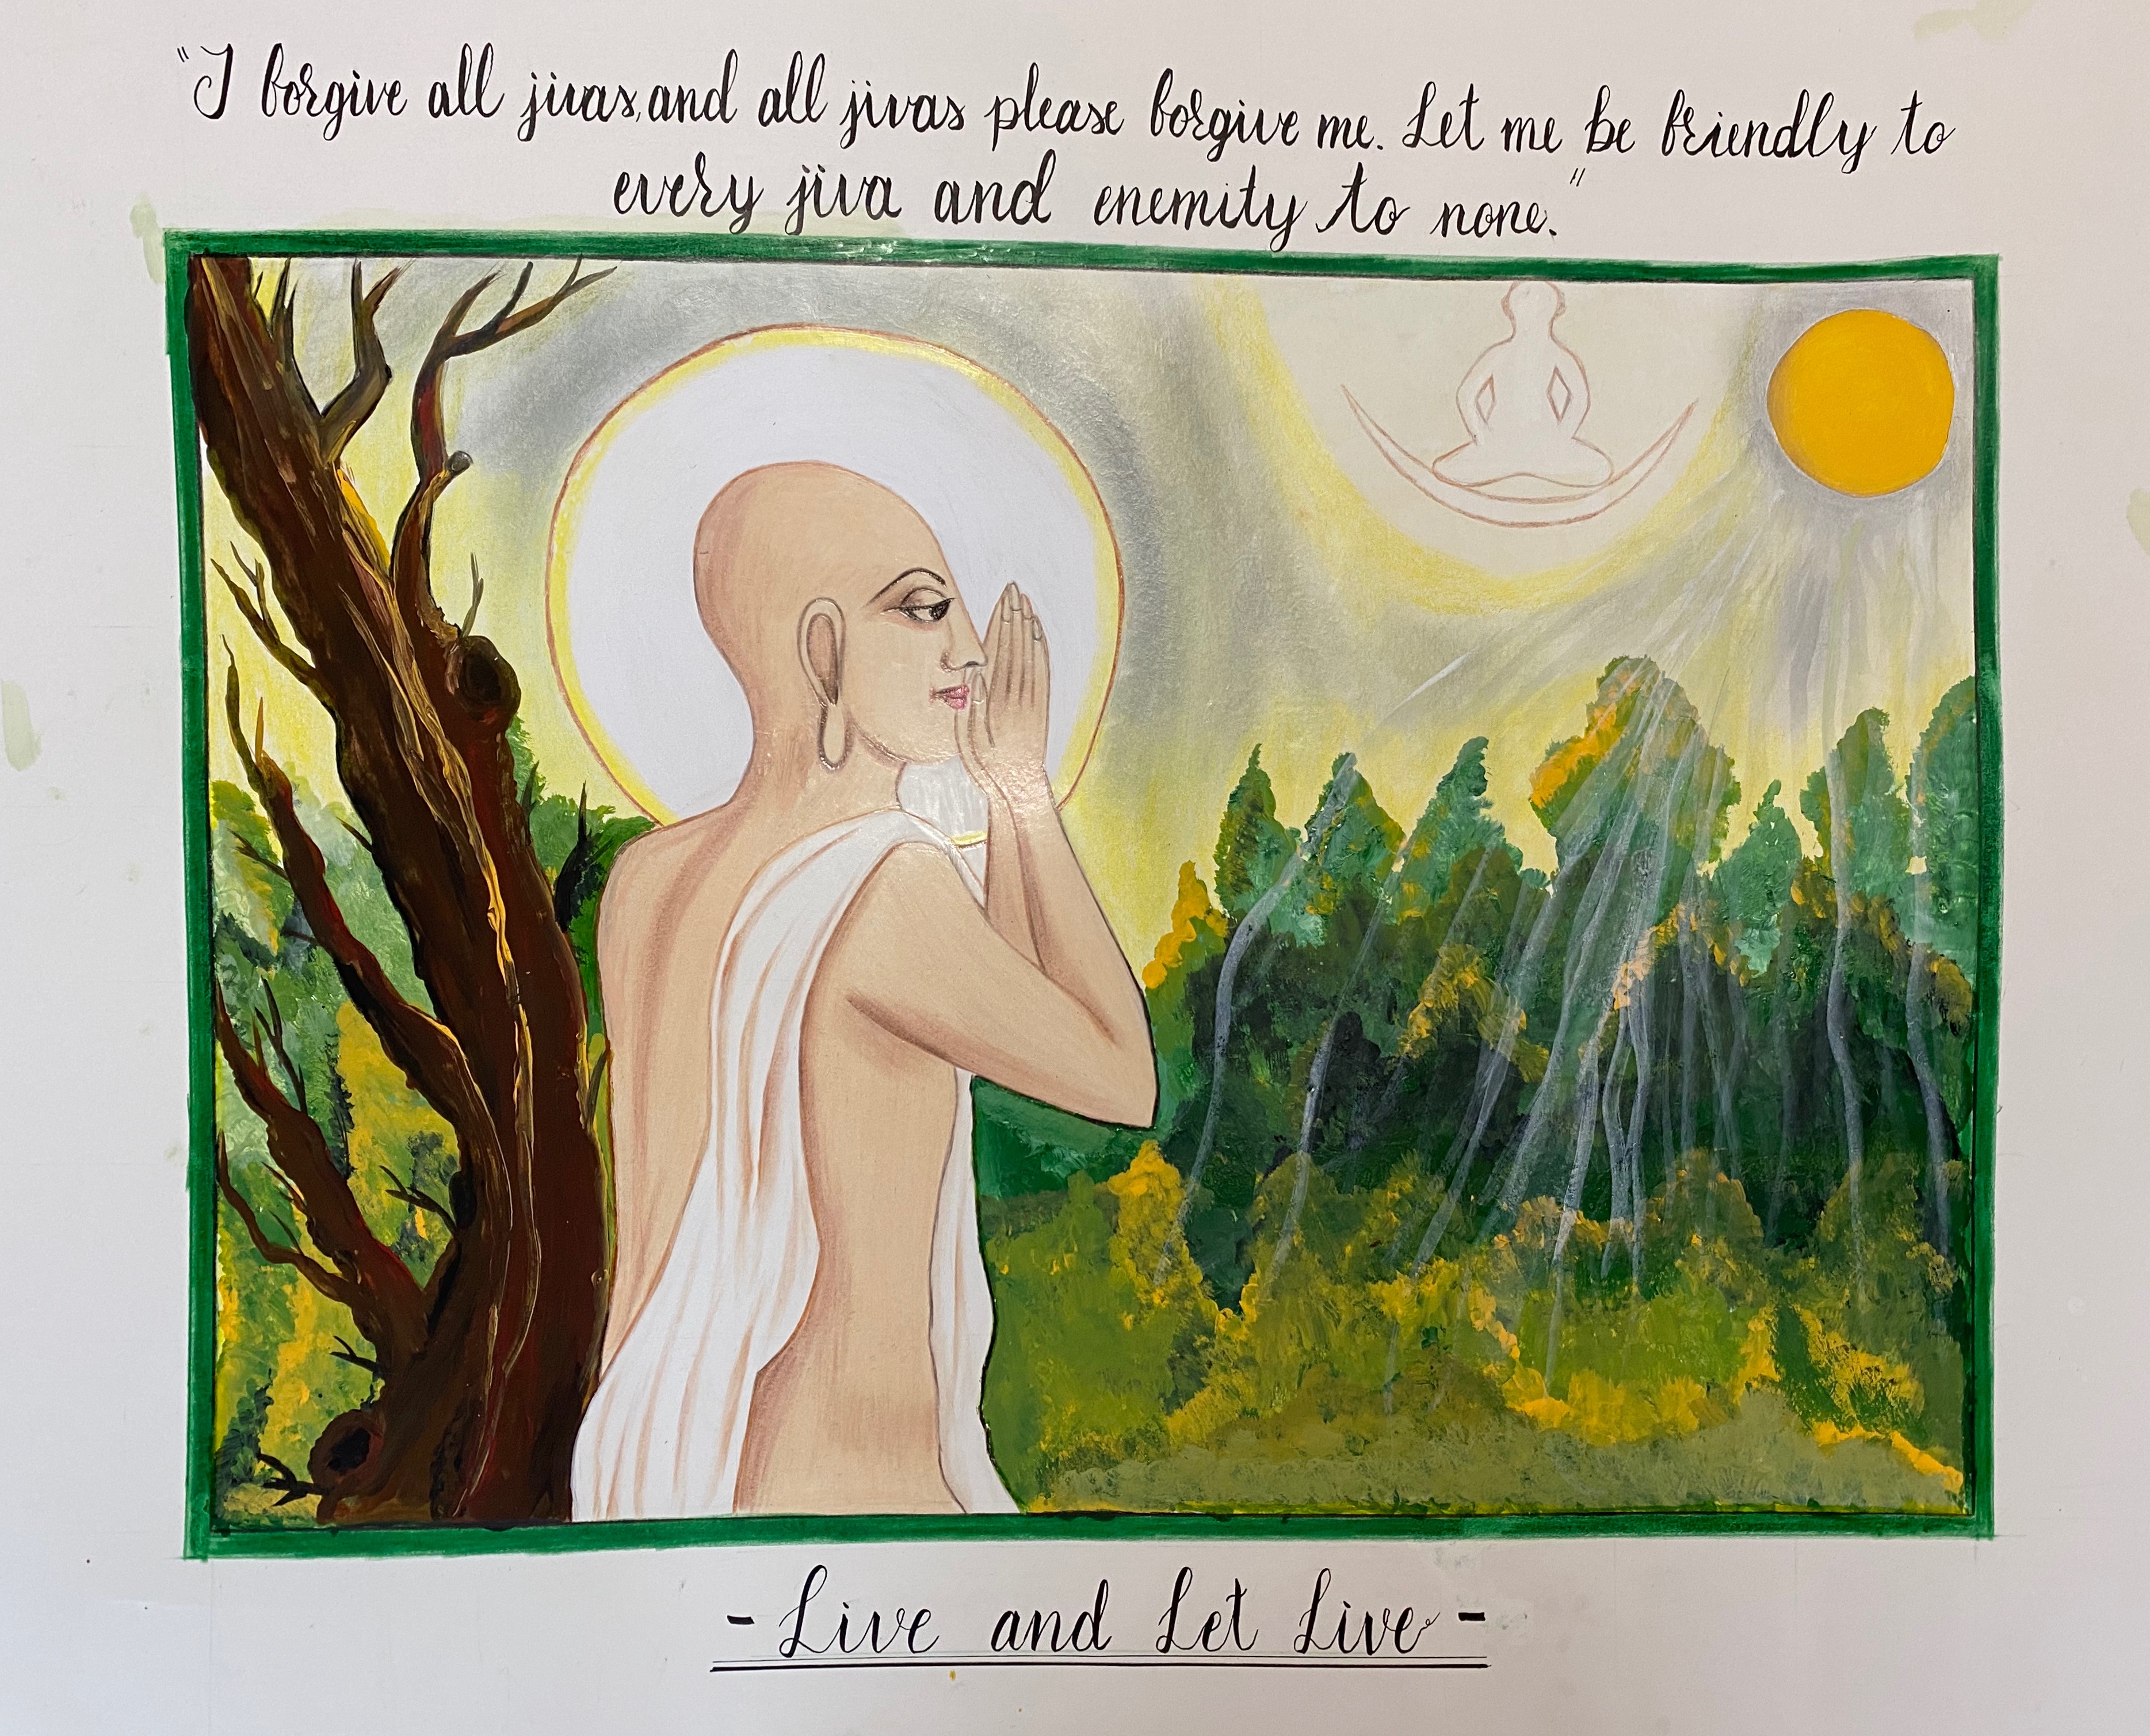 "I forgive all jivas, and all jivas please forgive me. Let me be friendly to
every jiva and enemity to none."
- Live and Let Live -